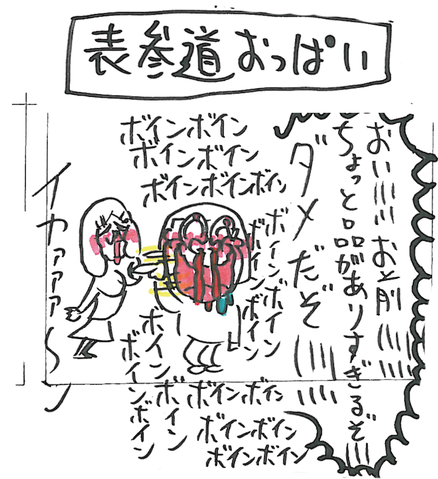 表参道おっぱい
おい!!!! お前!!!!
ちょっと品がありすぎるぞ!!!
ダメだぞ!!!!
ボインボイン
ボインボイン
ボインボインボイン
ボイン
ボイン
ボイン
ボイン
ボイン
ボイン
ボイン
ボイン
ボイン
ボイン
ボイン
ボインボイン
ボインボイン
ボインボイン
イヤァァァ〜ッ